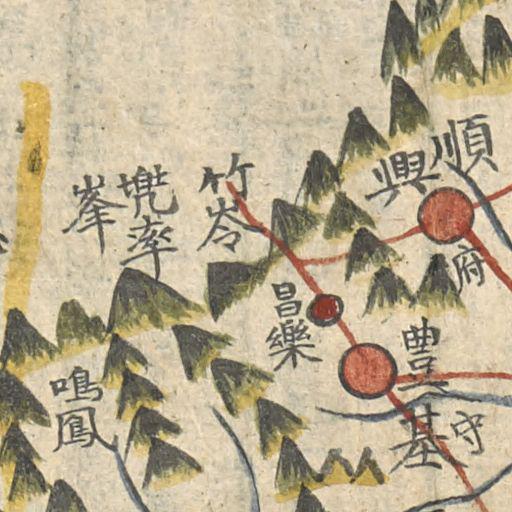 順興
府
竹岺
兠率
峯
昌樂
豊基
守
鳴鳳